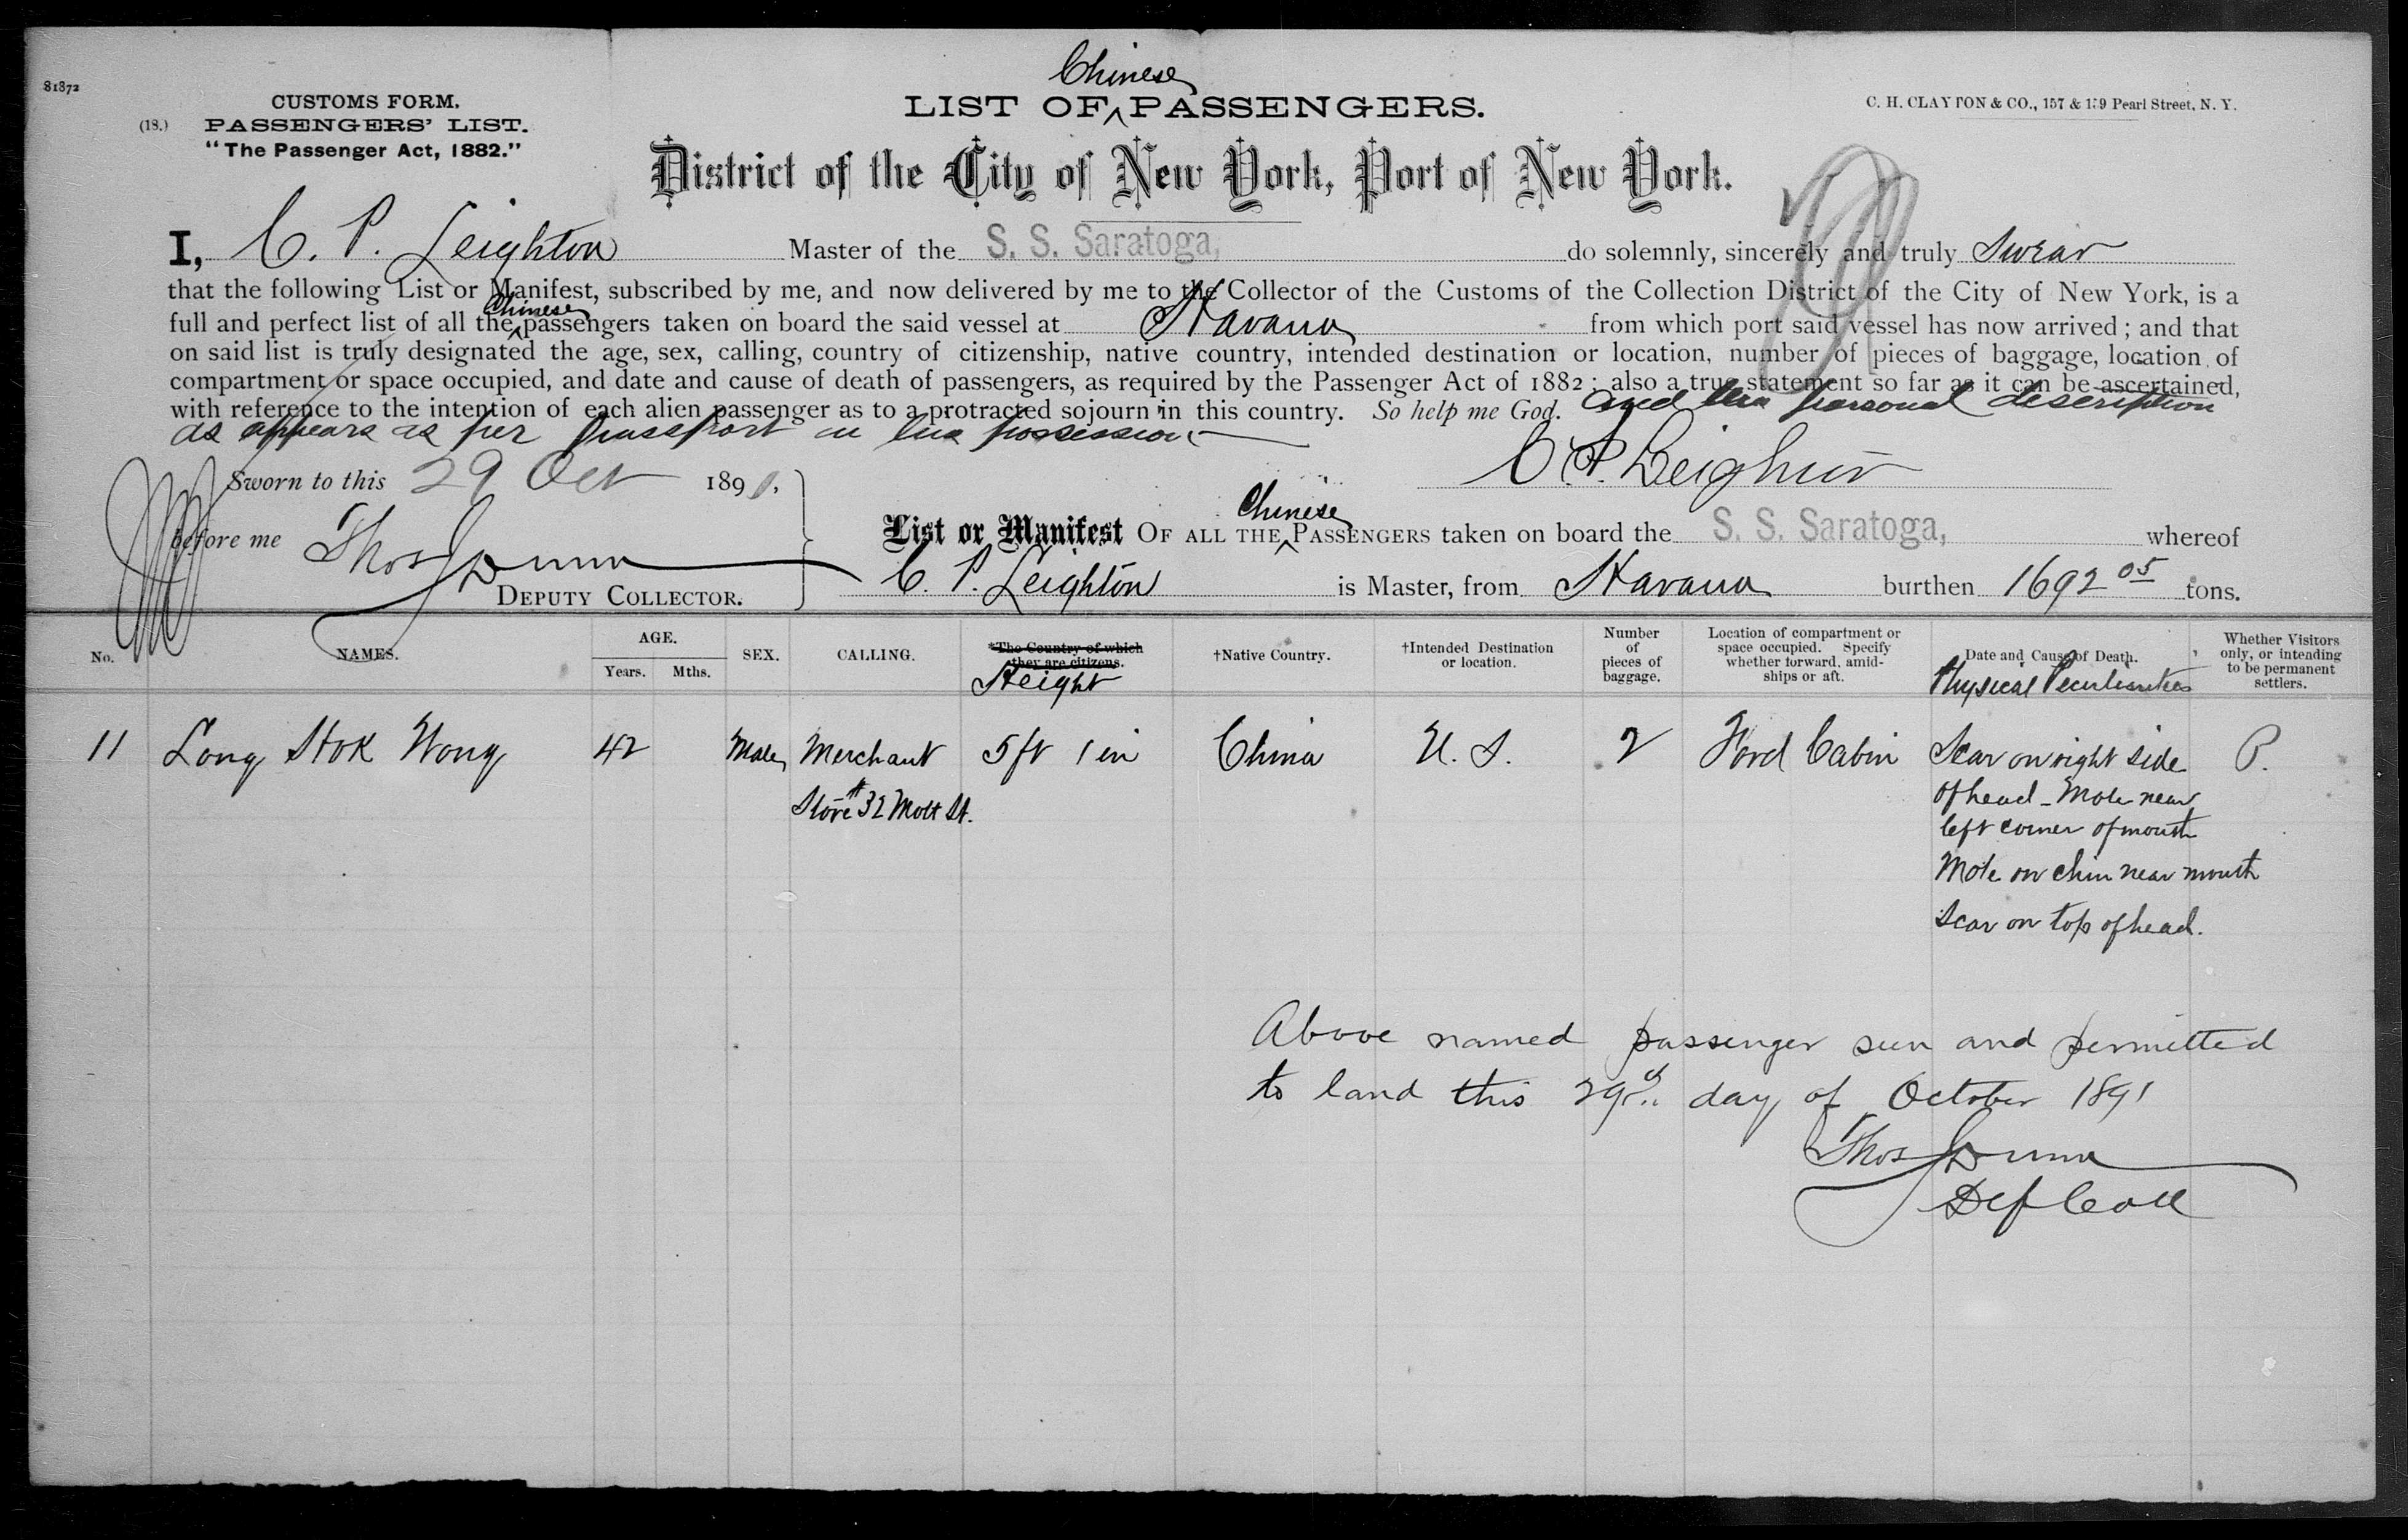 81872
CUSTOMS FORM.
(18.) PASSENGERS' LIST.
"The Passenger Act, 1882."
Chinese
LIST OF ^ PASSENGERS.
C. H. CLAYTON & CO., 157 & 159 Pearl Street, N. Y.
District of the City of New York, Port of New York.
I, C. P. Leighton Master of the S. S. Saratoga, do solemnly, sincerely and truly Swear
that the following List or Manifest, subscribed by me, and now delivered by me to the Collector of the Customs of the Collection District of the City of New York, is a
Chinese
full and perfect list of all the ^ passengers taken on board the said vessel at Havana from which port said vessel has now arrived; and that
on said list is truly designated the age, sex, calling, country of citizenship, native country, intended destination or location, number of pieces of baggage, location of
compartment or space occupied, and date and cause of death of passengers, as required by the Passenger Act of 1882; also a true statement so far as it can be ascertained,
with reference to the intention of each alien passenger as to a protracted sojourn in this country. So help me God. and personal description
as appears as per passport in his possession
Sworn to this 29 Oct 1891.
C. P. Leighton
before me Thos Dunn
DEPUTY COLLECTOR.
Chinese
List or Manifest OF ALL THE ^ PASSENGERS taken on board the S. S. Saratoga, whereof
C. P. Leighton is Master, from Havana burthen 1692 05 tons.
No. NAMES. AGE. Years. Mths. SEX. CALLING. *The Country of which they are citizens. Height †Native Country. †Intended Destination or location. Number of pieces of baggage. Location of compartment or space occupied. Specify whether forward, amidships or aft. Date and Cause of Death. Physical Peculiarities Whether Visitors only, or intending to be permanent settlers.
11 Long Hok Wong 42 Male Merchant 5 ft 1 in China U. S. 2 Ford Cabin Scar on right side P.
Store #32 Mott St. of head - Mole near
left corner of mouth
Mole on chin near mouth
Scar on top of head.
Above named passenger seen and permitted
to land this 29th day of October 1891
Thos Dunn
Dep Coll